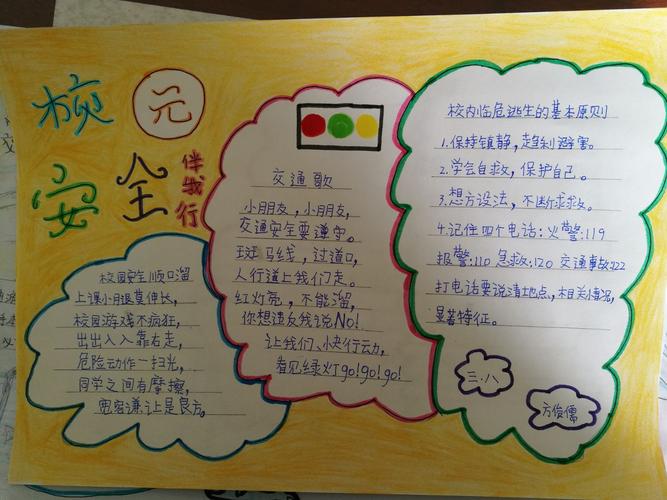 校元
安全
伴我行
校园安全顺口溜
上课小腿莫伸长,
校园游戏不疯狂,
出出入入靠右走,
危险动作一扫光,
同学之间有摩擦,
宽容谦让是良方。
交通歌
小朋友,小朋友,
交通安全要遵守。
斑马线,过道口,
人行道上我们走。
红灯亮,不能溜,
你想违反我说No!
让我们、快行动,
看见绿灯go!go!go!
校内临危逃生的基本原则
1.保持镇静,趋利避害。
2.学会自救,保护自己。
3.想方设法,不断求救。
4.记住四个电话:火警:119
报警:110 急救:120 交通事故:122
打电话要说清地点、相关情况,
显著特征。
三.八
方俊儒